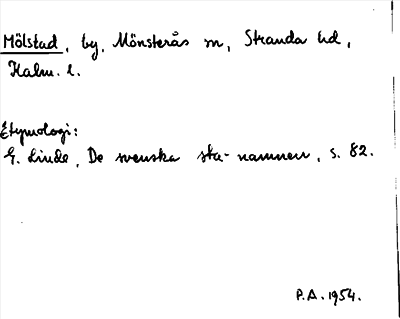 Mölstad, by, Mönsterås sn, Stranda hd,
Kalm. l.
Etymologi:
G. Linde, De svenska sta-namnen, s. 82.
P.A. 1954.